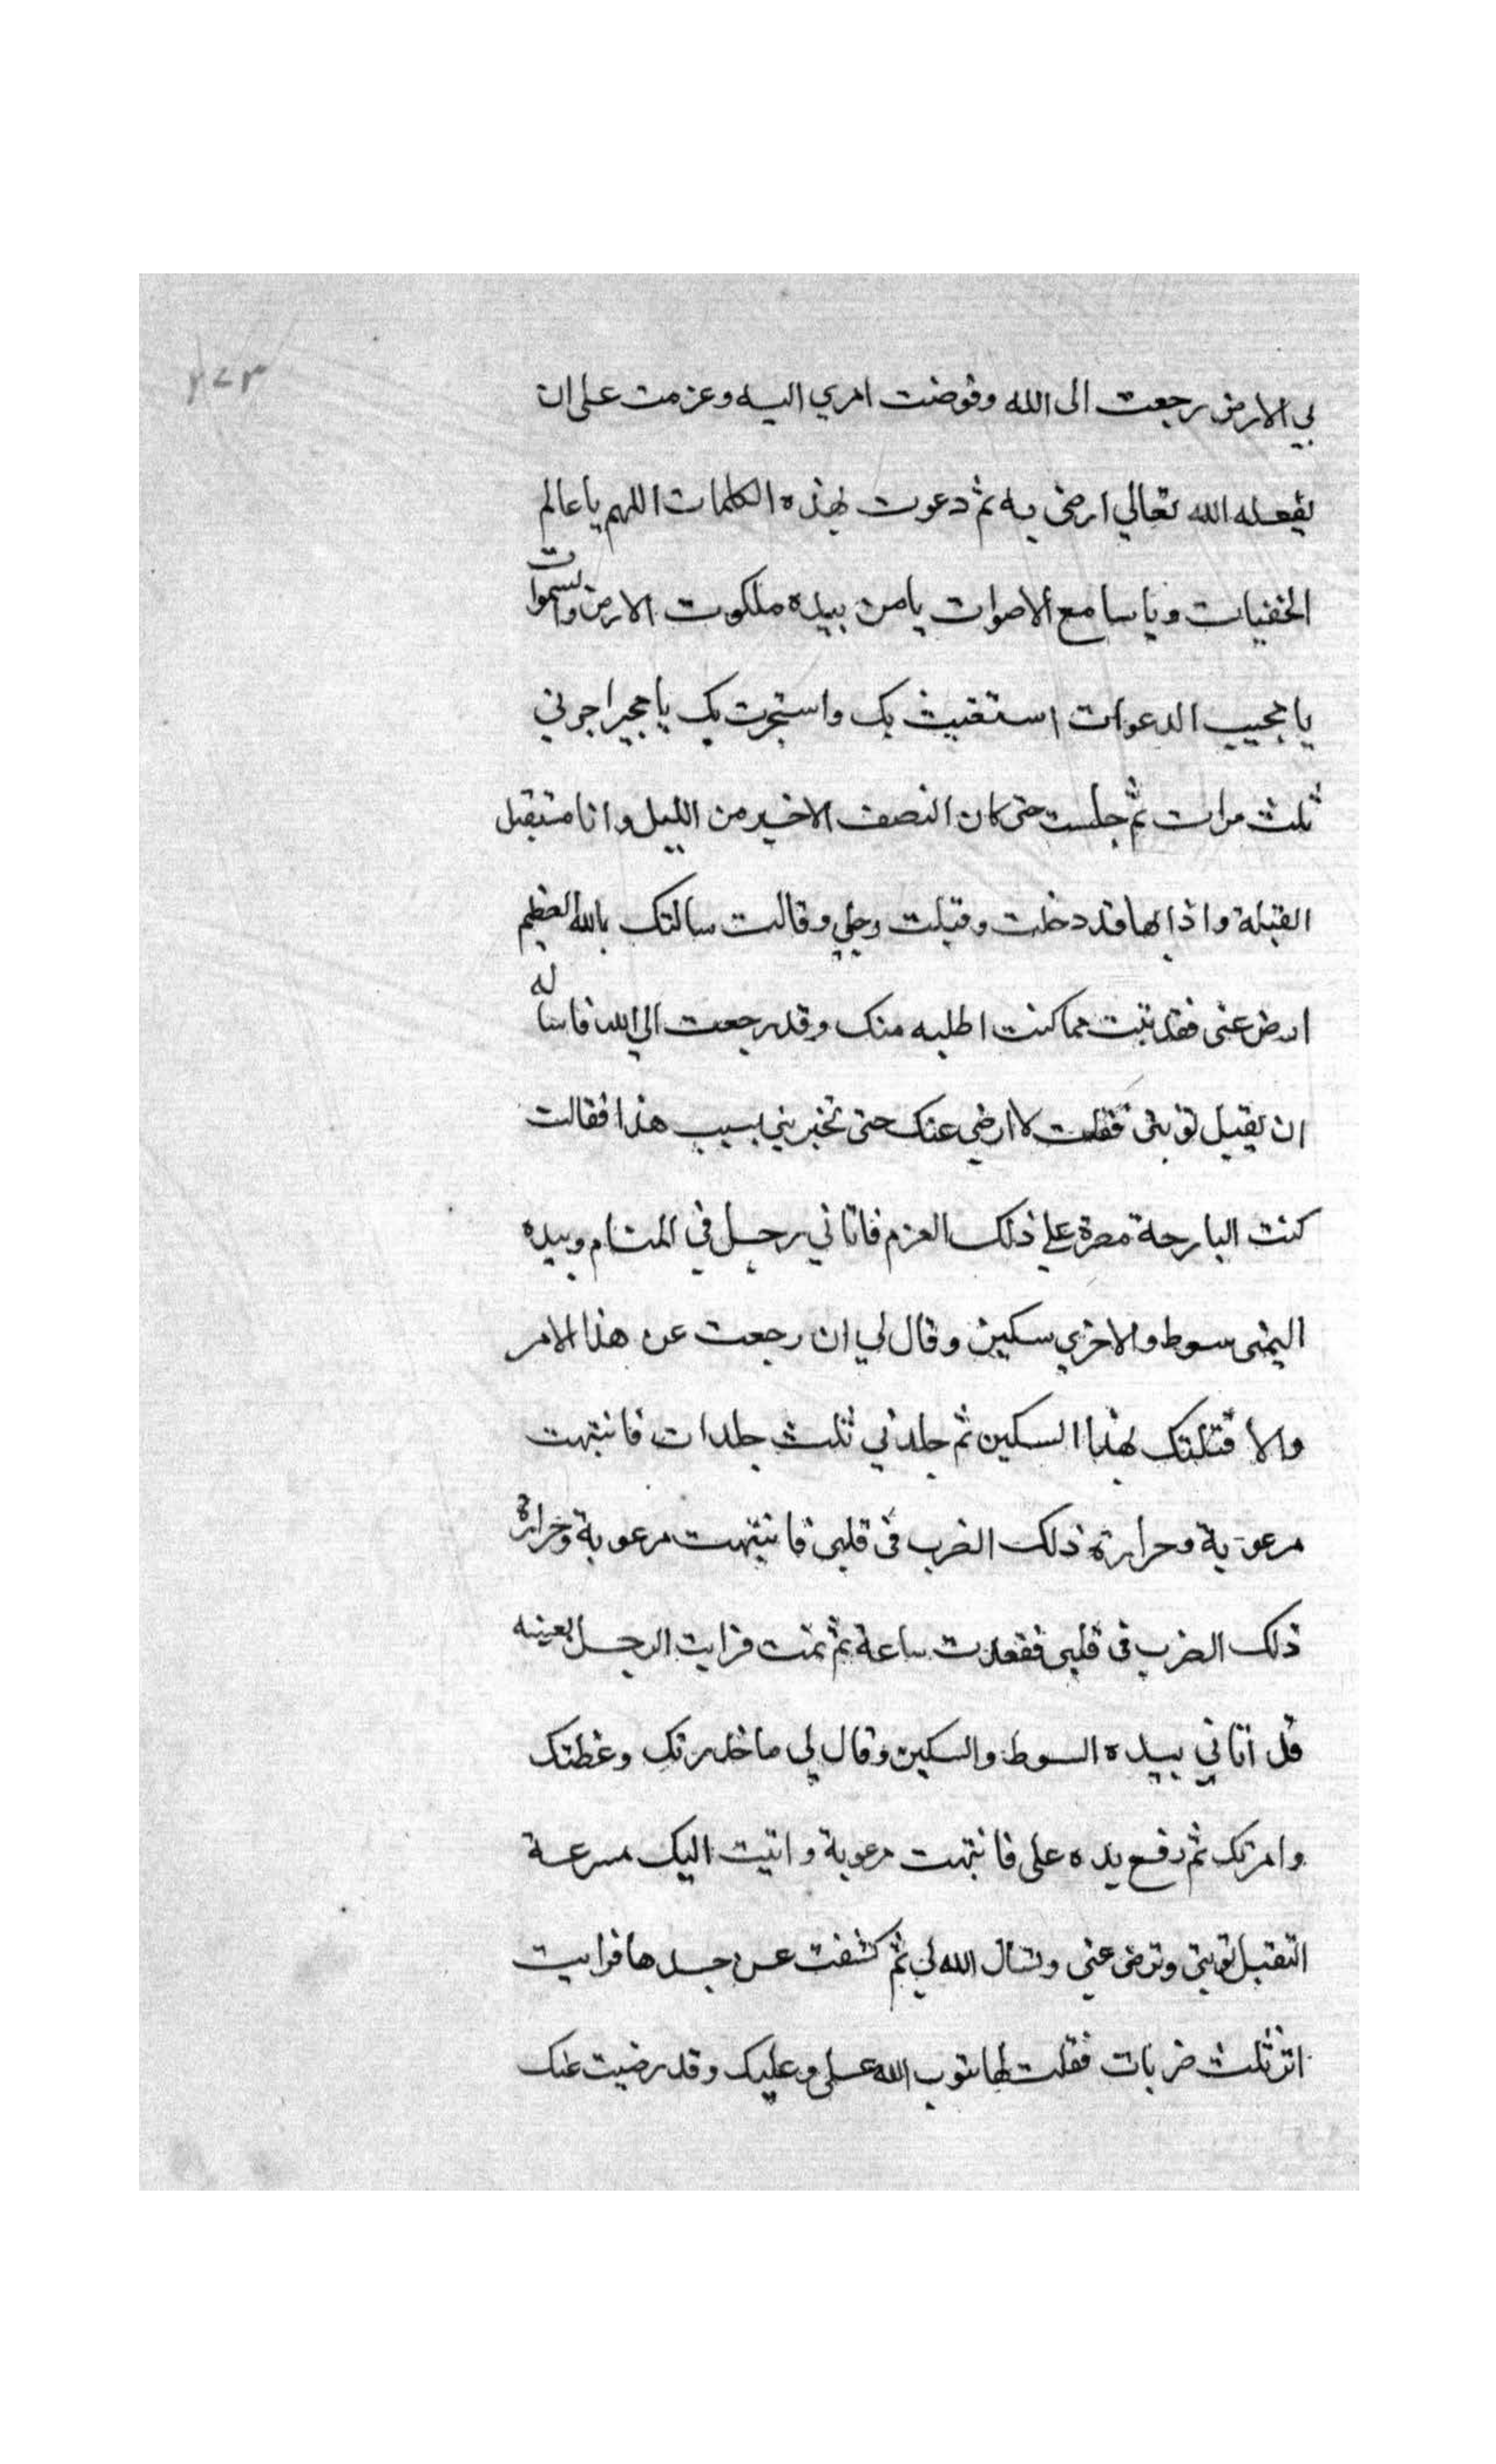 ٢٧٣
بي الارض رجعت الى الله وفوضت امري اليه وعزمت على ان
يفعله الله تعالي ارضى به ثم دعوت بهذه الكلمات اللهم يا عالم
الخفيات ويا سامع الاصوات يا من بيده ملكوت الارض والسموات
يا مجيب الدعوات استغيث بك واستجرت بك يا مجير اجرني
ثلث مرات ثم جلست حتى كان النصف الاخير من الليل وانا مستقبل
القبلة واذا بها قد دخلت وقبلت رجلي وقالت سالتك بالله العظيم
ارض عني فقد تبت مما كنت اطلبه منك وقد رجعت الي الله فاساله
ان يقبل توبتى فقلت لا ارضي عنك حتى تخبريني بسبب هذا فقالت
كنت البارحة مصرة علي ذلك العزم فاتاني رجل في المنام وبيده
اليمنى سوط والاخري سكين وقال لي ان رجعت عن هذا الامر
والا قتلتك بهذا السكين ثم جلدني ثلث جلدات فانتبهت
مرعوبة وحرارة ذلك الضرب فى قلبى فانتبهت مرعوبة وحرارة
ذلك الضرب فى قلبى فقعدت ساعة ثم نمت فرايت الرجل بعينه
قد اتاني بيده السوط والسكين وقال لي ما حذرتك وعظتك
وامرتك ثم رفع يده على فانتبهت مرعوبة واتيت اليك مسرعة
التقبل توبتى وترض عنى وتسال الله لي ثم كشفت عن جسدها فرايت
اثر ثلث ضربات فقلت لها يتوب الله على وعليك وقد رضيت عنك